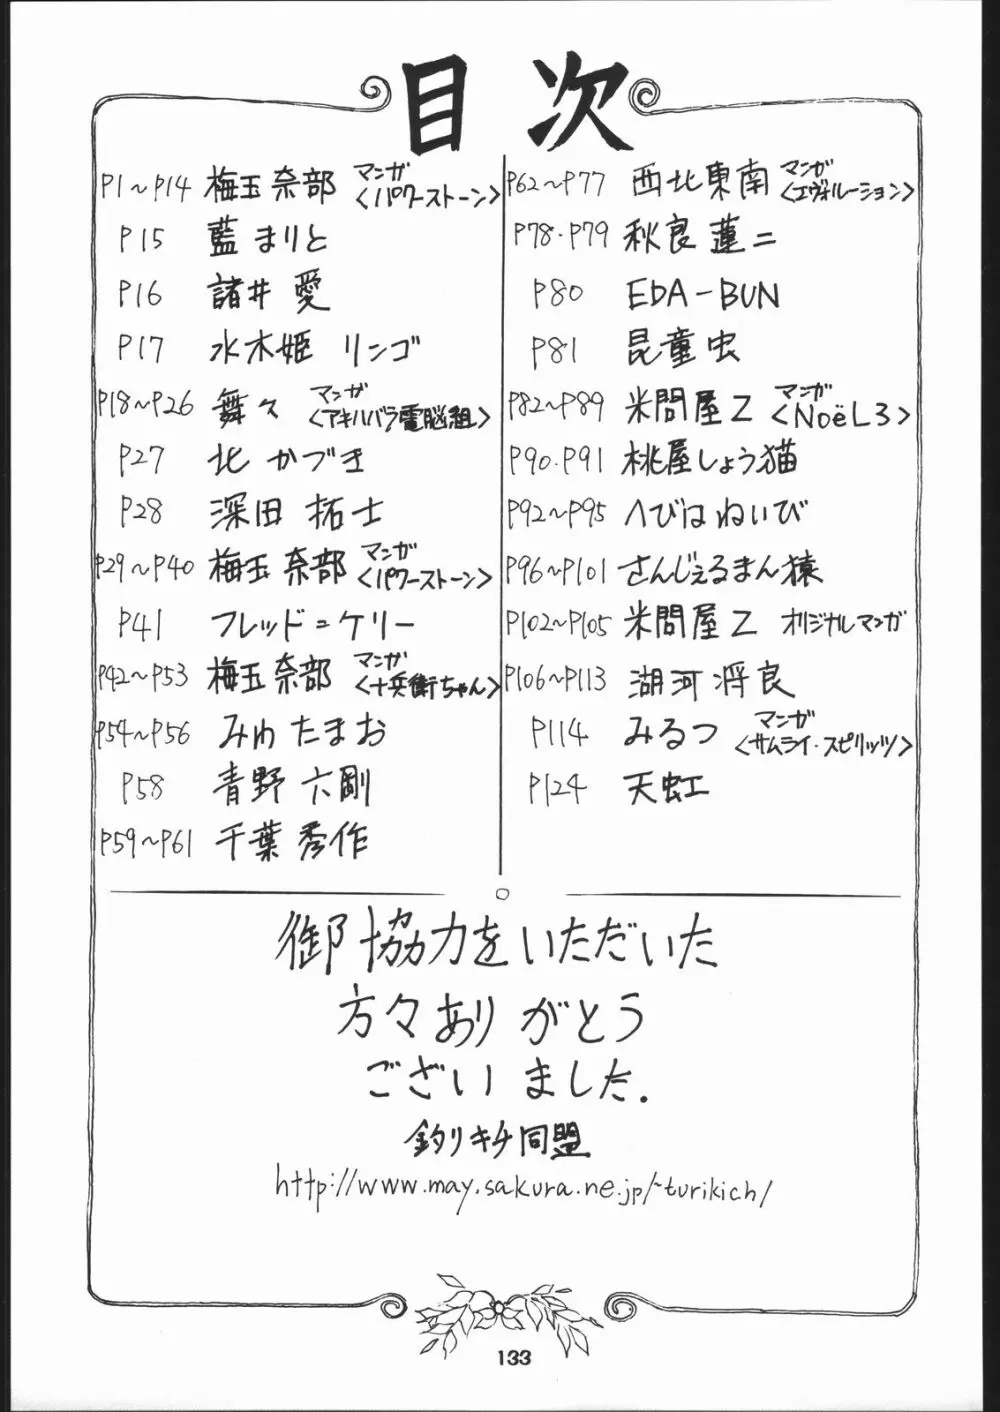 目次
P1～P14 梅玉奈部 マンガ<パワーストーン>
P15 藍まりと
P16 諸井 愛
P17 水木姫 リンゴ
P18～P26 舞々 マンガ<アキハバラ電脳組>
P27 北 かづき
P28 深田 拓士
P29～P40 梅玉奈部 マンガ<パワーストーン>
P41 フレッド=ケリー
P42～P53 梅玉奈部 マンガ<十兵衛ちゃん>
P54～P56 みわ たまお
P58 青野 六剛
P59～P61 千葉 秀作
P62～P77 西北東南 マンガ<エヴォルーション>
P78・P79 秋良 蓮二
P80 EDA-BUN
P81 昆童虫
P82～P89 米問屋Z マンガ<NoëL3>
P90.P91 桃屋しょう猫
P92～P95 へびはねいび
P96～P101 さんじぇるまん猿
P102～P105 米問屋Z オリジナルマンガ
P106～P113 湖河 将良
P114 みるつ マンガ<サムライ・スピリッツ>
P124 天虹
御協力をいただいた
方々ありがとう
ございました.
釣りキチ同盟
http://www.may.sakura.ne.jp/~turikich/
133